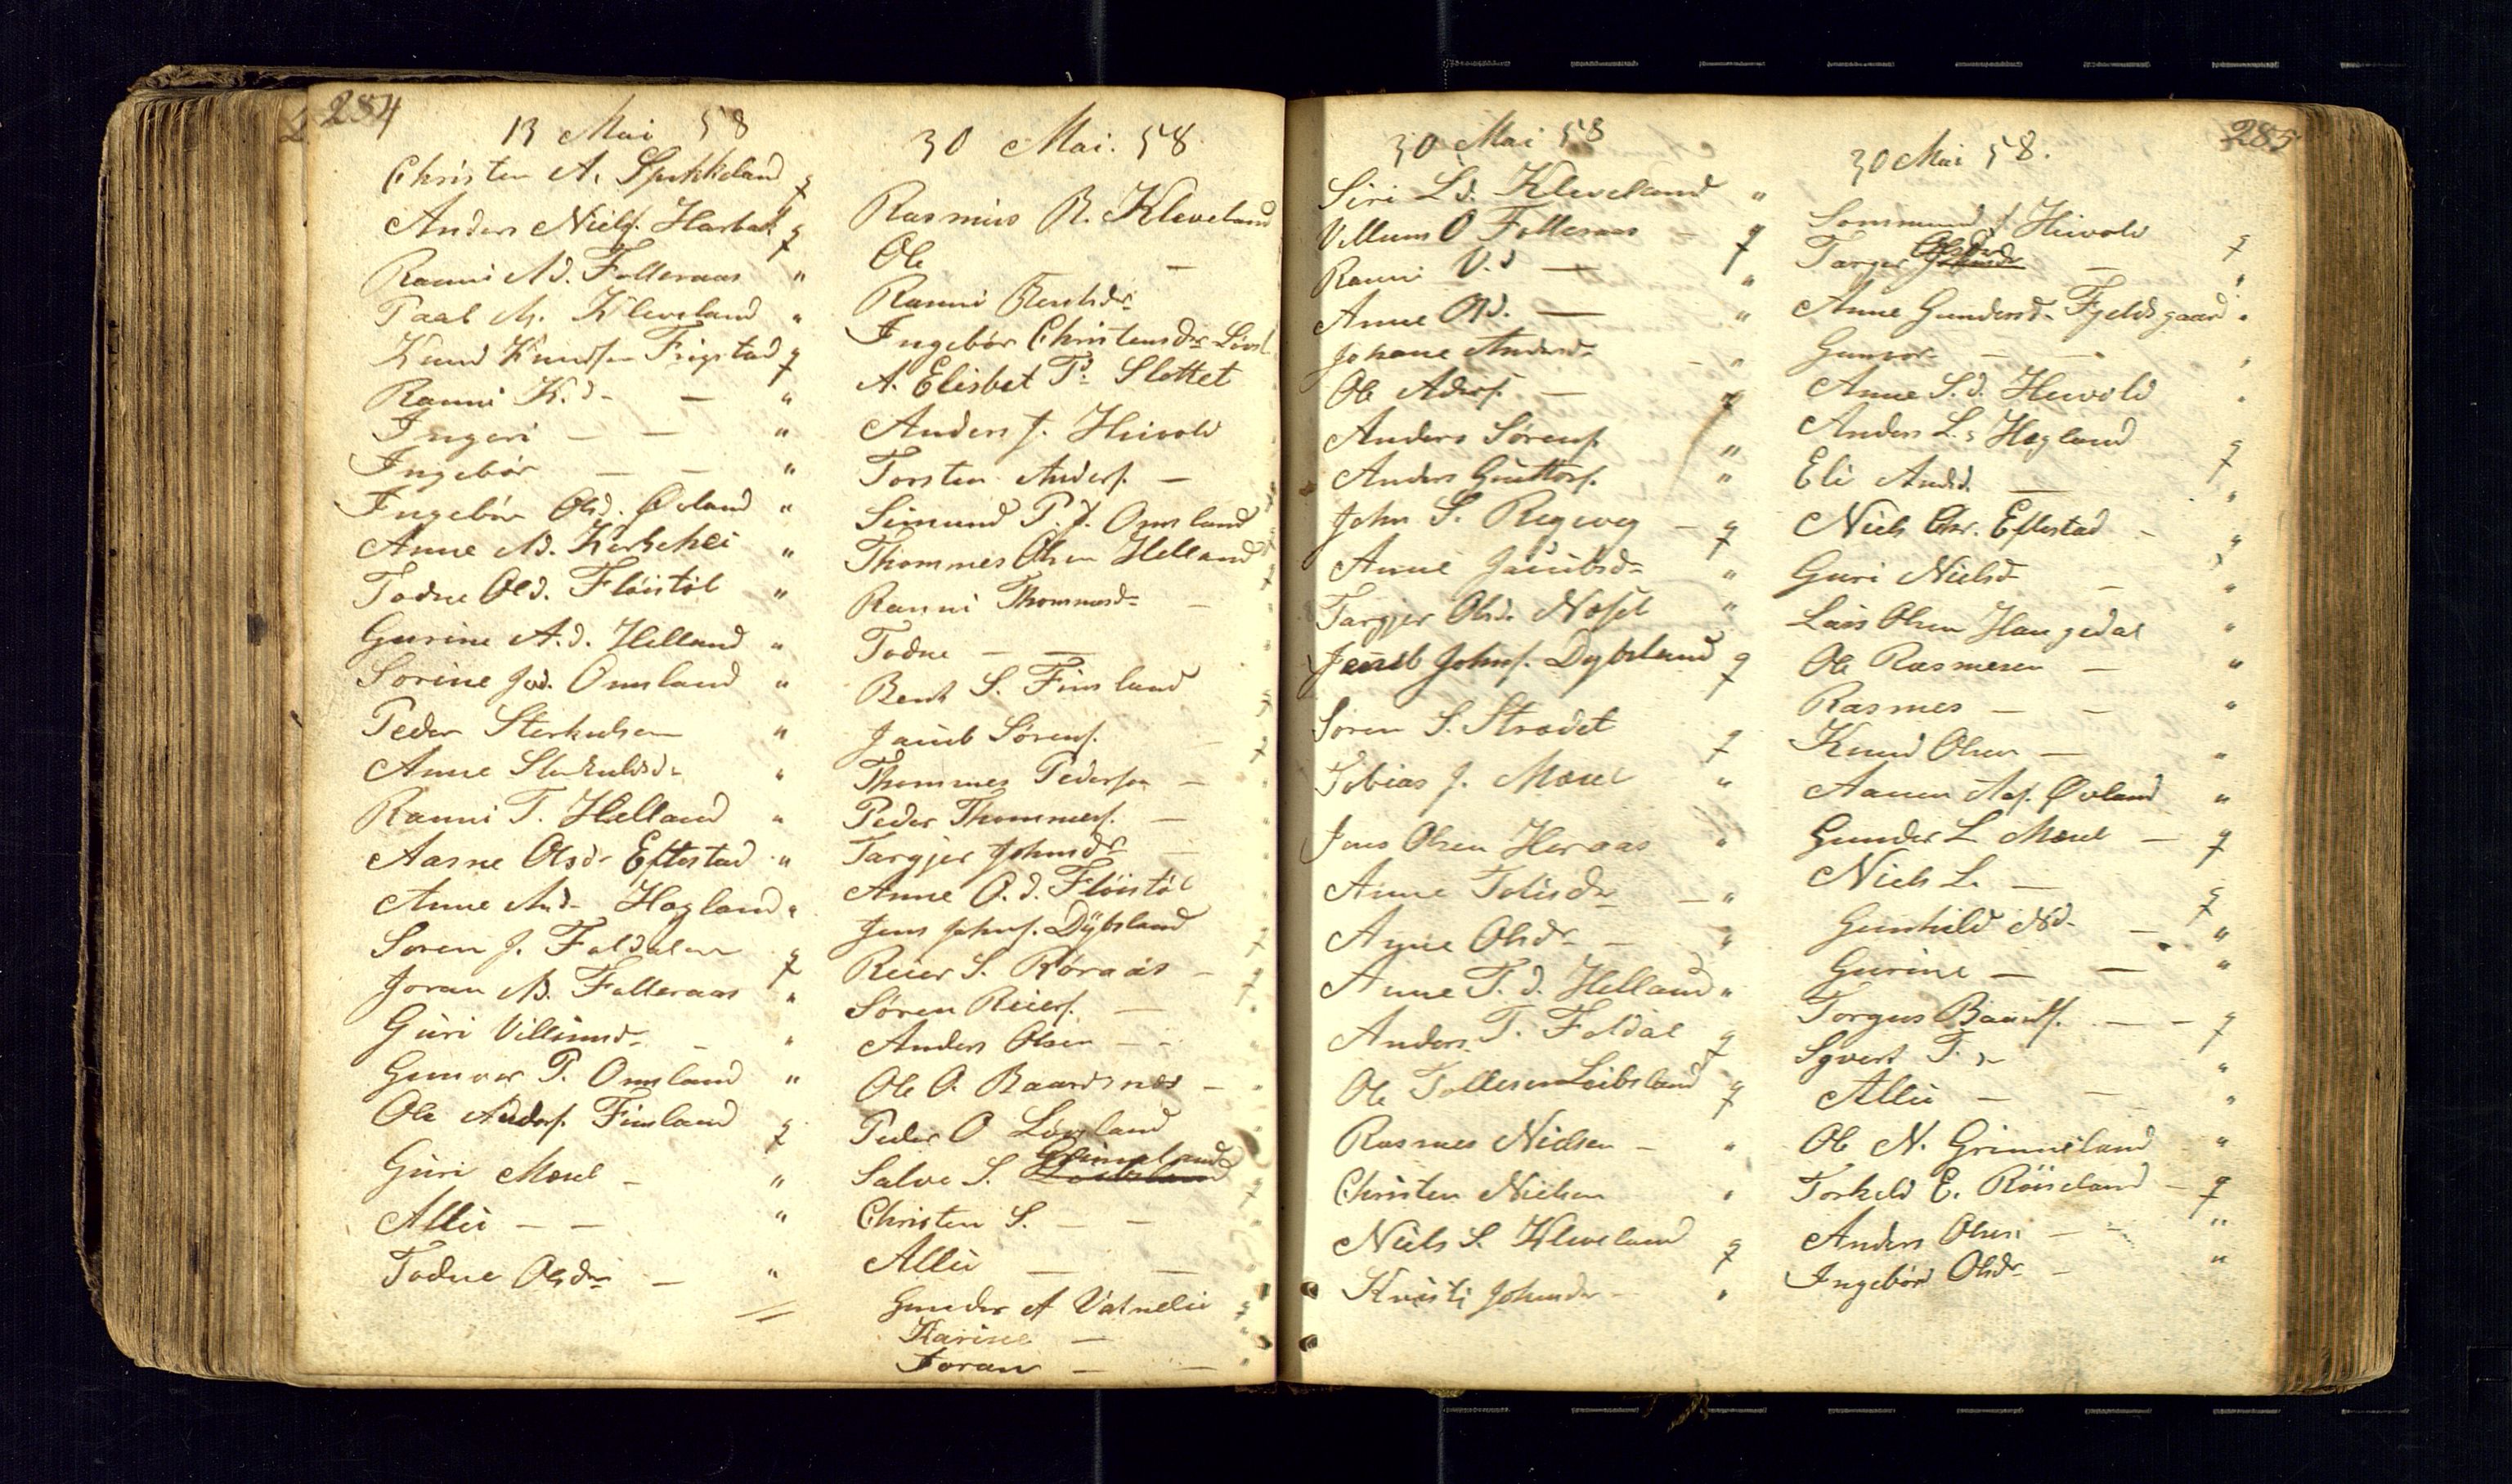 284
13 Mai 58
Christen A. Spikkeland g
Anders Niels. Harbak g
Ranni Ad. Folleraas "
Paal M. Kleveland "
Knud Knudsen Frigstad g
Ranni K. d. — "
Ingeri — — "
Ingebör — — "
Ingebör Olsd. Øvland "
Anne Ad. Kirkehei "
Todne Old. Flöistöl "
Gurine A. d. Helland "
Sorine Jad. Omland "
Peder Sterkulsen "
Anne Sterkulsd. "
Ranni T. Helland "
Aasne Olsdr Eftestad "
Anne And. Hægland "
Sören J. Foldalen g
Joran Ad. Folleraas "
Guri Villumsd. — "
Gunvor P. Omland "
Ole Anders. Finsland g
Guri Moseid — "
Allis — — "
Todne Olsdr — "
30 Mai. 58
Rasmus B. Kleveland
Ole —
Ranni Bentsdr
Ingebör Christensdr Lövl
A. Elisbet Pd. Slottet
Anders J. Heivold
Torsten Anders. —
Simund P. J. Omland
Thommes Olsen Helland
Ranni Thommesd. —
Todne — —
Bent S. Finsland
Jacob Sörens. —
Thommes Pedersen —
Peder Thommes. —
Targjer Johnsdr —
Anne O. d. Flöistöl
Jens Johns. Dybsland
Reier S. Röraas —
Sören Reiers. —
Anders Olsen — —
Ole O. Baardsnes —
Peder O Lövland
Salve S. Grimeland
Christen S. — —
Allis — —
Gunder A Vatnelie
Karine —
Joran — —
285
30 Mai 58
Siri Ld. Kleveland "
Villum O Folleraas — g
Ranni V. d — "
Anne Old. — "
Johane Andersd. — "
Ole Aders. — g
Anders Sörens. "
Anders Guttors. "
John S. Regevg — g
Anne Jacobsd. "
Targjer Olsd. Nosel "
Jacob Johns. Dybsland g
Sören S. Strædet g
Tobias J. Moseid "
Jens Olsen Heraas "
Anne Tolisdr — "
Anne Olsdr — "
Anne T. d. Helland "
Anders T. Foldal g
Ole Tollesen Leibsland g
Rasmus Nielsen — "
Christen Nielsen "
Niels S. Kleveland g
Kristi Johnsdr — "
30 Mai 58.
Sommund J Heivold g
Targer Olsdr — "
Anne Gundersd. Fjeldsgaard "
Gunvor — — "
Anne S. d. Heivold "
Anders L. s Hægland g
Eli Andd. — "
Niels Chr. Eftestad — "
Guri Nielsd — "
Lars Olsen Haugedal "
Ole Rasmesen — "
Rasmes — — "
Knud Olsen — "
Aanen Aas. Øvland "
Gunder L Moseid — g
Niels L. — g
Gunhild Nd. — "
Gurine — — "
Torgus Baards. — — g
Syvert T. s — "
Allis — — "
Ole N. Grimeland "
Torkeld E. Röiseland — g
Anders Olsen — — "
Ingebör Olsdr — "